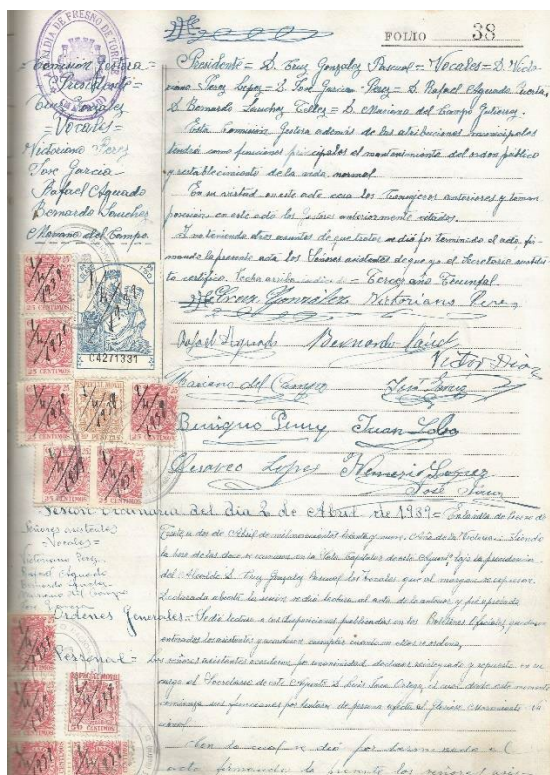 FOLIO 38
ALCALDIA DE FRESNO DE TOROTE
= Comisión Gestora =
Presidente =
Cruz Gonzalez
= Vocales =
Victoriano Perez
Jose Garcia
Rafael Aguado
Bernardo Sanchez
Mariano del Campo
Presidente = D. Cruz Gonzalez Pascual = Vocales = D. Victo-
riano Perez Lopez = D. Jose Garcia Perez = D. Rafael Aguado
D. Bernardo Sanchez Tellez = D. Mariano del Campo Gutierrez
Esta Comisión Gestora además de las atribuciones municipales
tendrá como funciones principales el mantenimiento del orden público
y restablecimiento de la vida normal
En su virtud en este acto cesan los Consejeros anteriores y toman
posesión en este acto los Gestores anteriormente citados.
Y no teniendo otros asuntos de que tratar se dió por terminado el acto, fir-
mando la presente acta los Señores asistentes de que yo el Secretario
certifico. Fecha arriba = Tercer año Triunfal =
Cruz Gonzalez Victoriano Perez
Rafael Aguado Bernardo
Victor Diaz
Mariano del Campo
Benigno Juan
Lopez Nemesio Lopez
Jose
25 CENTIMOS
1/4/1939
C4271331
Sesión Ordinaria del dia 2 de Abril de 1939 = En la villa de Fresno de
Torote, a dos de Abril de mil novecientos treinta y nueve, Año de la Victoria. Siendo
la hora de las doce se reunieron en la Sala Capitular de este Ayunt.º bajo la presidencia
del Alcalde D. Cruz Gonzalez Pascual los Vocales que al margen se expresan.
Declarada abierta la sesión se dió lectura al acta de la anterior y fué aprobada
Señores asistentes
= Vocales =
Victoriano Perez
Rafael Aguado
Bernardo Sanchez
Mariano del Campo
Jose Garcia
Ordenes Generales = Se dió lectura a las disposiciones publicadas en los Boletines Oficiales, quedaron
enterados los asistentes y acordaron cumplir cuanto en ellas se ordena.
Personal = Los señores asistentes acordaron por unanimidad declarar
cargo al Secretario de este Ayunt.º D. Luis Ortega el cual desde este momento
comienza sus funciones por tratarse de persona afecta al Glorioso Movimiento Na-
cional.
se dió por terminado el
acto firmando la presente los señores asis-